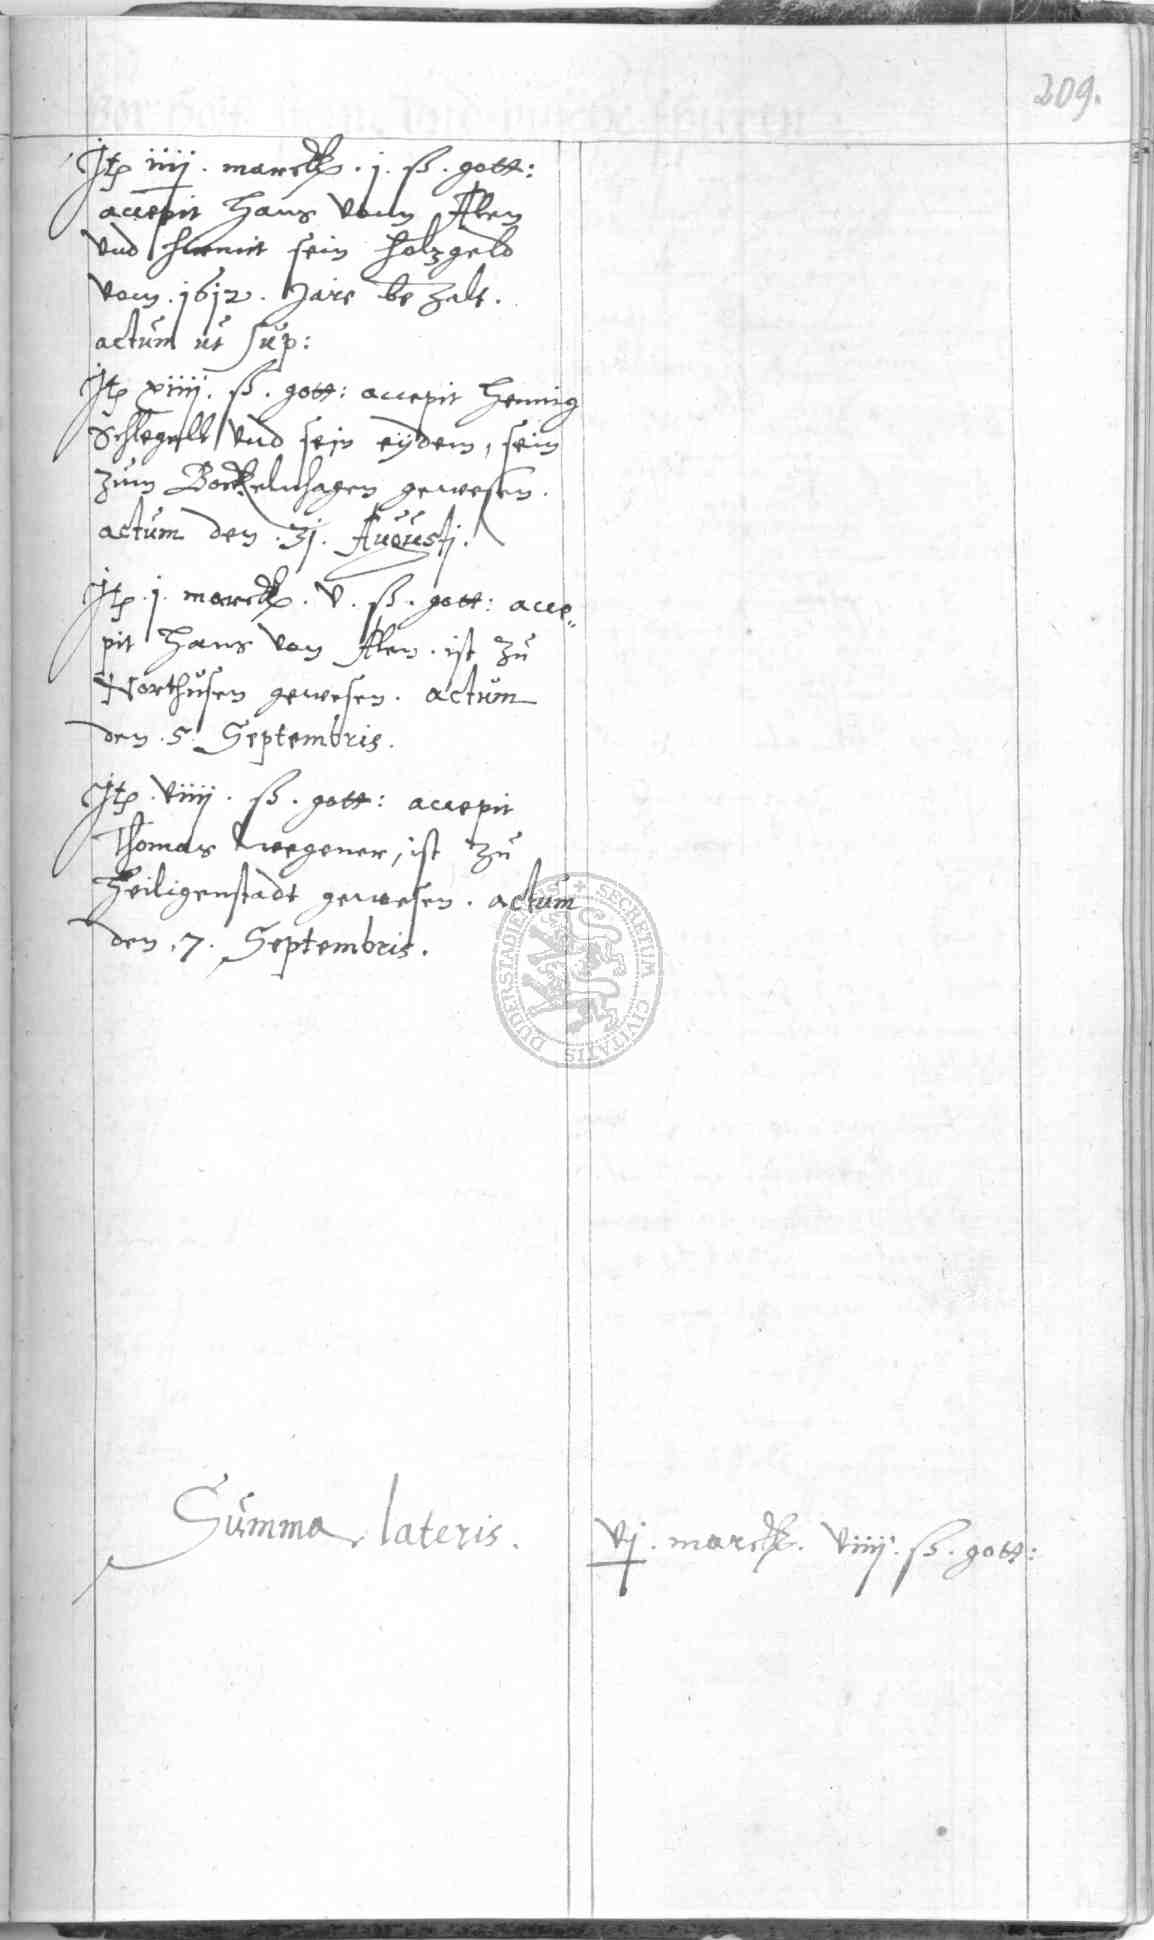 209.
Jtz iiij . marck . j . ß . gott:
accepit Hans vonn Alen
vnd hiemit sein holzgeld
vom . 1612 . Jare bezalt .
actum ut sup:
Jtz xiiij . ß . gott: accepit Hennig
Schlegell vnd sein eydem, sein
zum Bockelnhagen gewesen .
actum den . 31 . Augusti .
Jtz . j . marck . v . ß . gott: acce„
pit Hans von Alen . ist zu
Northusen gewesen . actum
den . 5 . Septembris .
Jtz . viiij . ß . gott: accepit
Thomas Wegener, ist zu
Heiligenstadt gewesen . actum
den . 7 . Septembris .
SECRETUM CIVITATIS DUDERSTADIENSIS
Summa lateris .
vj . marck . viiij . ß . gott: